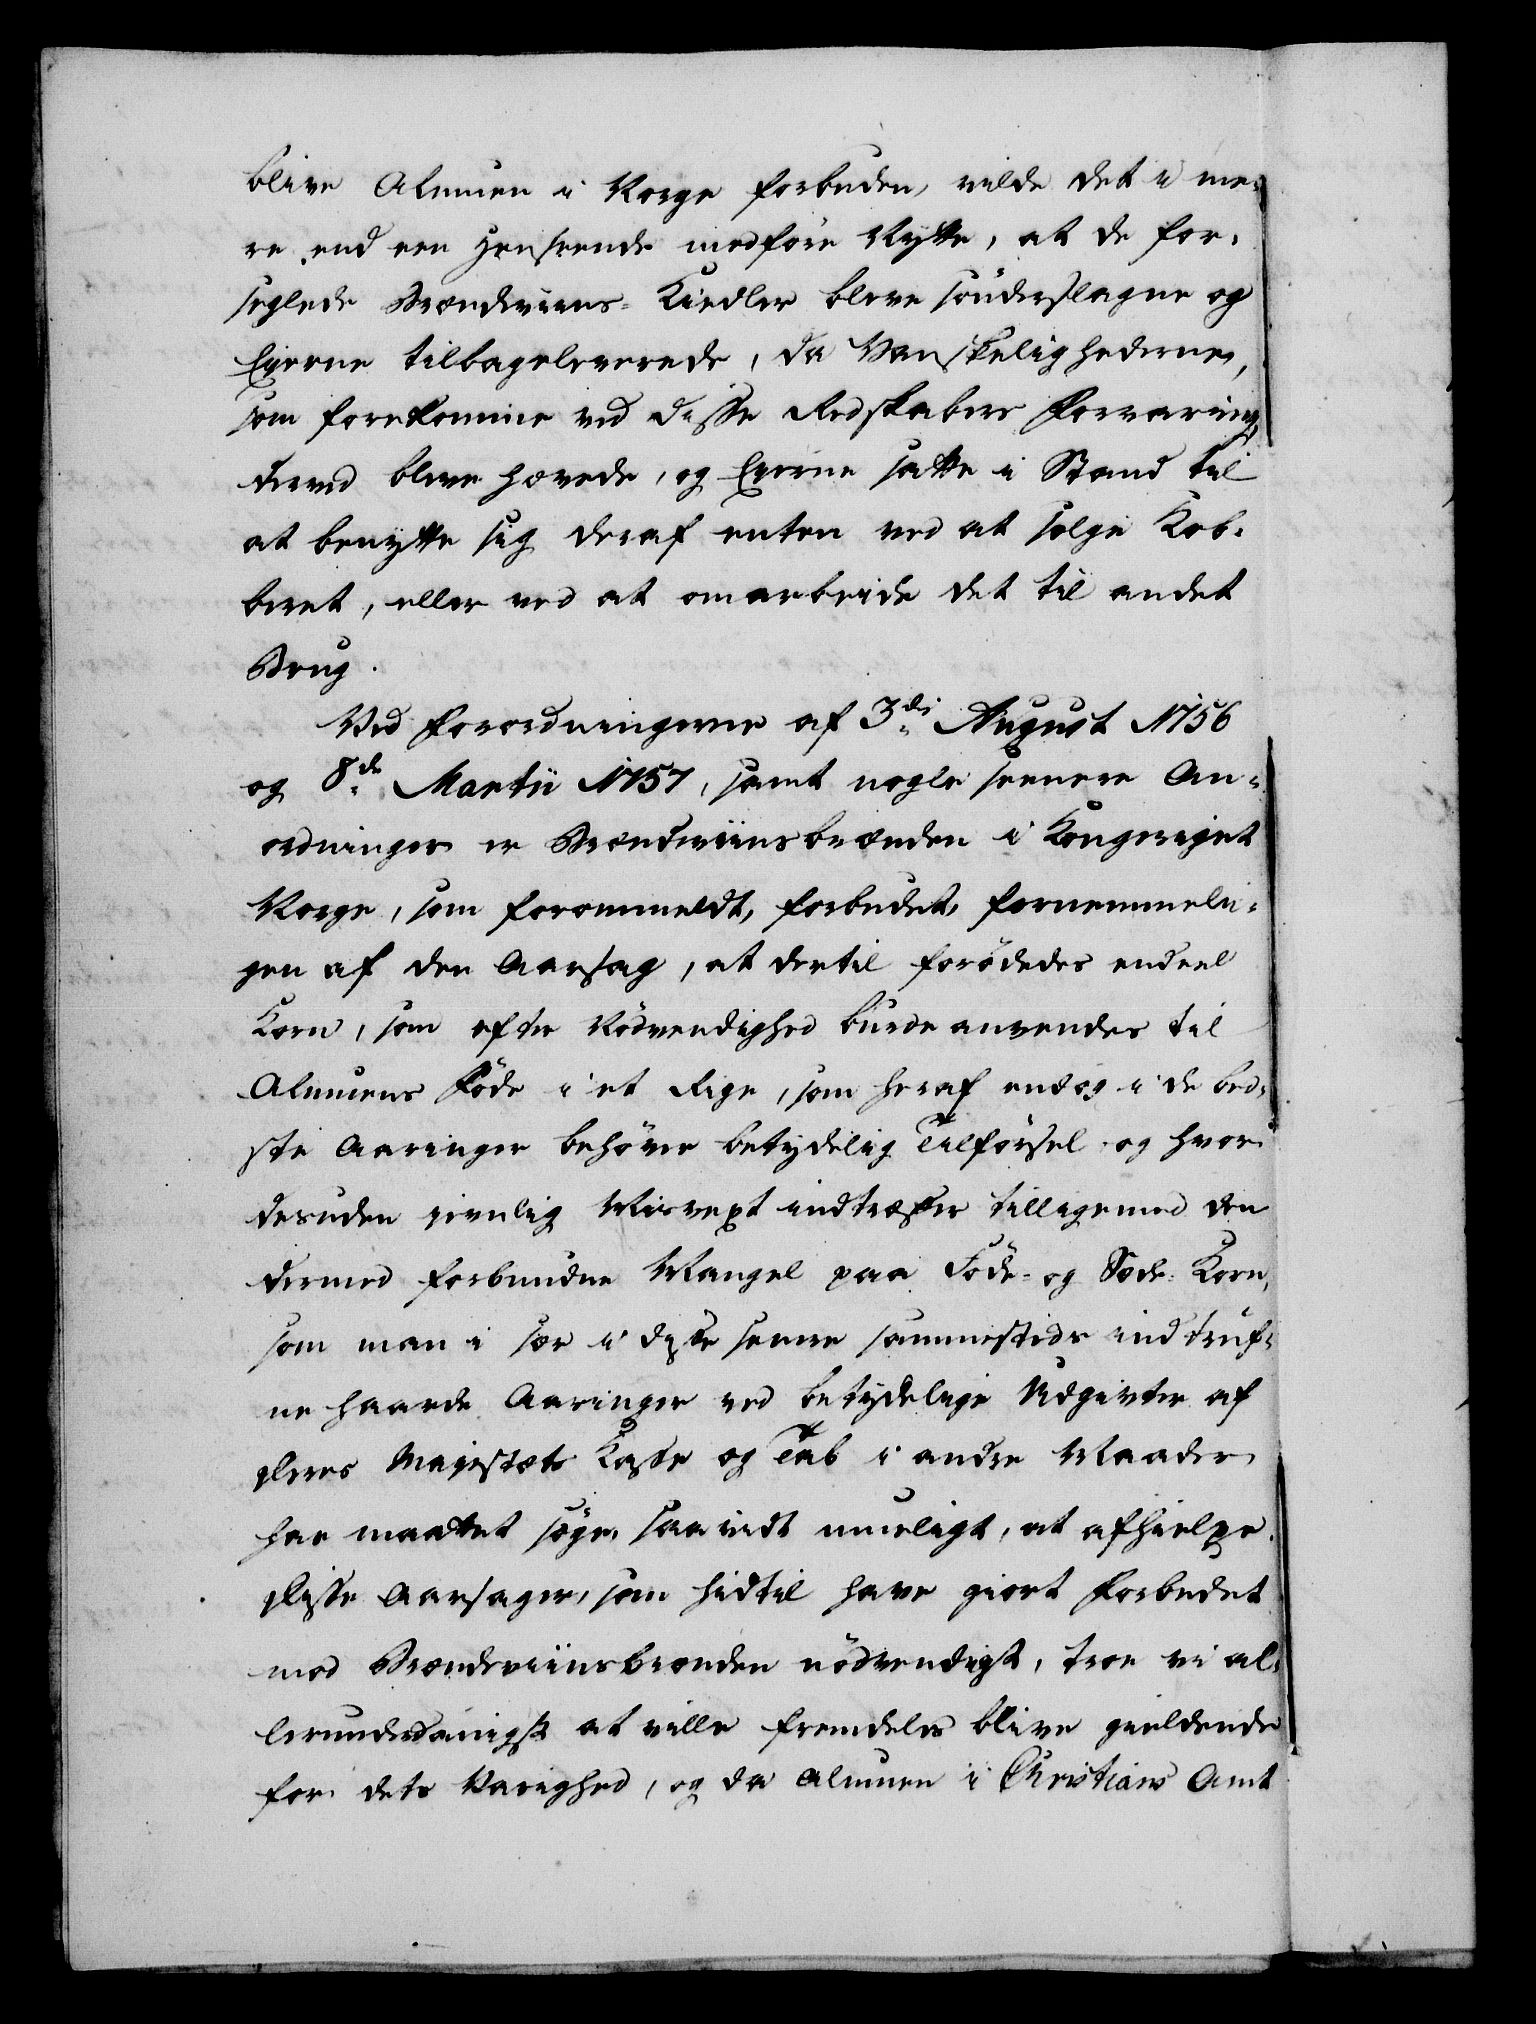 blive Almuen i Norge forbuden, vilde det i me-
re end een Henseende medføre Nytte, at de for-
seglede Brændeviins-Kiedler bleve sønderslagne og
Eierne tilbageleverede, da Vanskelighederne,
som forekomme ved disse Redskabers Forvaring,
derved bleve hævede, og Eierne satte i Stand til
at benytte sig deraf enten ved at sælge Kob-
beret, eller ved at omarbeide det til andet
Brug.
Ved Forordningerne af 3die August 1756
og 8de Martii 1757, samt nogle seenere An-
ordninger er Brændeviinsbrænden i Kongeriget
Norge, som foranmeldt, forbudet, fornemmeli-
gen af den Aarsag, at dertil forødedes endeel
Korn, som efter Nødvendighed burde anvendes til
Almuens Føde i et Rige, som heraf endog i de bed-
ste Aaringer behøver betydelig Tilførsel og hvor
desuden jevnlig Misvext indtræffer tilligemed den
dermed forbundne Mangel paa Føde- og Sæde-Korn,
som man i sær i disse senere sammestæds indtruf-
ne haarde Aaringer ved betydelige Udgivter af
Deres Majestæts Kasse og Tab i andre Maader
har maattet søge, saavidt mueligt, at afhielpe.
Disse Aarsager, som hidtil have giort Forbudet
mod Brændeviinsbrænden nødvendigt, troe vi al-
lerunderdanigst at ville fremdeles blive gieldende
for dets Varighed, og da Almuen i Christians Amt